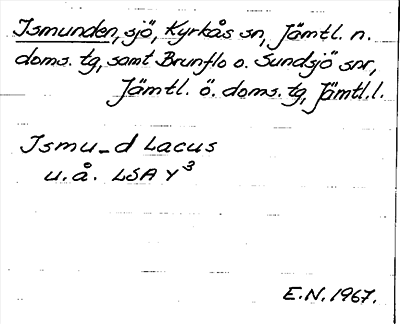 Ismunden, sjö, Kyrkås sn, Jämtl. n.
doms. tg, samt Brunflo o. Sundsjö snr,
Jämtl. ö. doms. tg, Jämtl.l.
Ismu_d Lacus
u.å. LSA Y³
E.N. 1967.